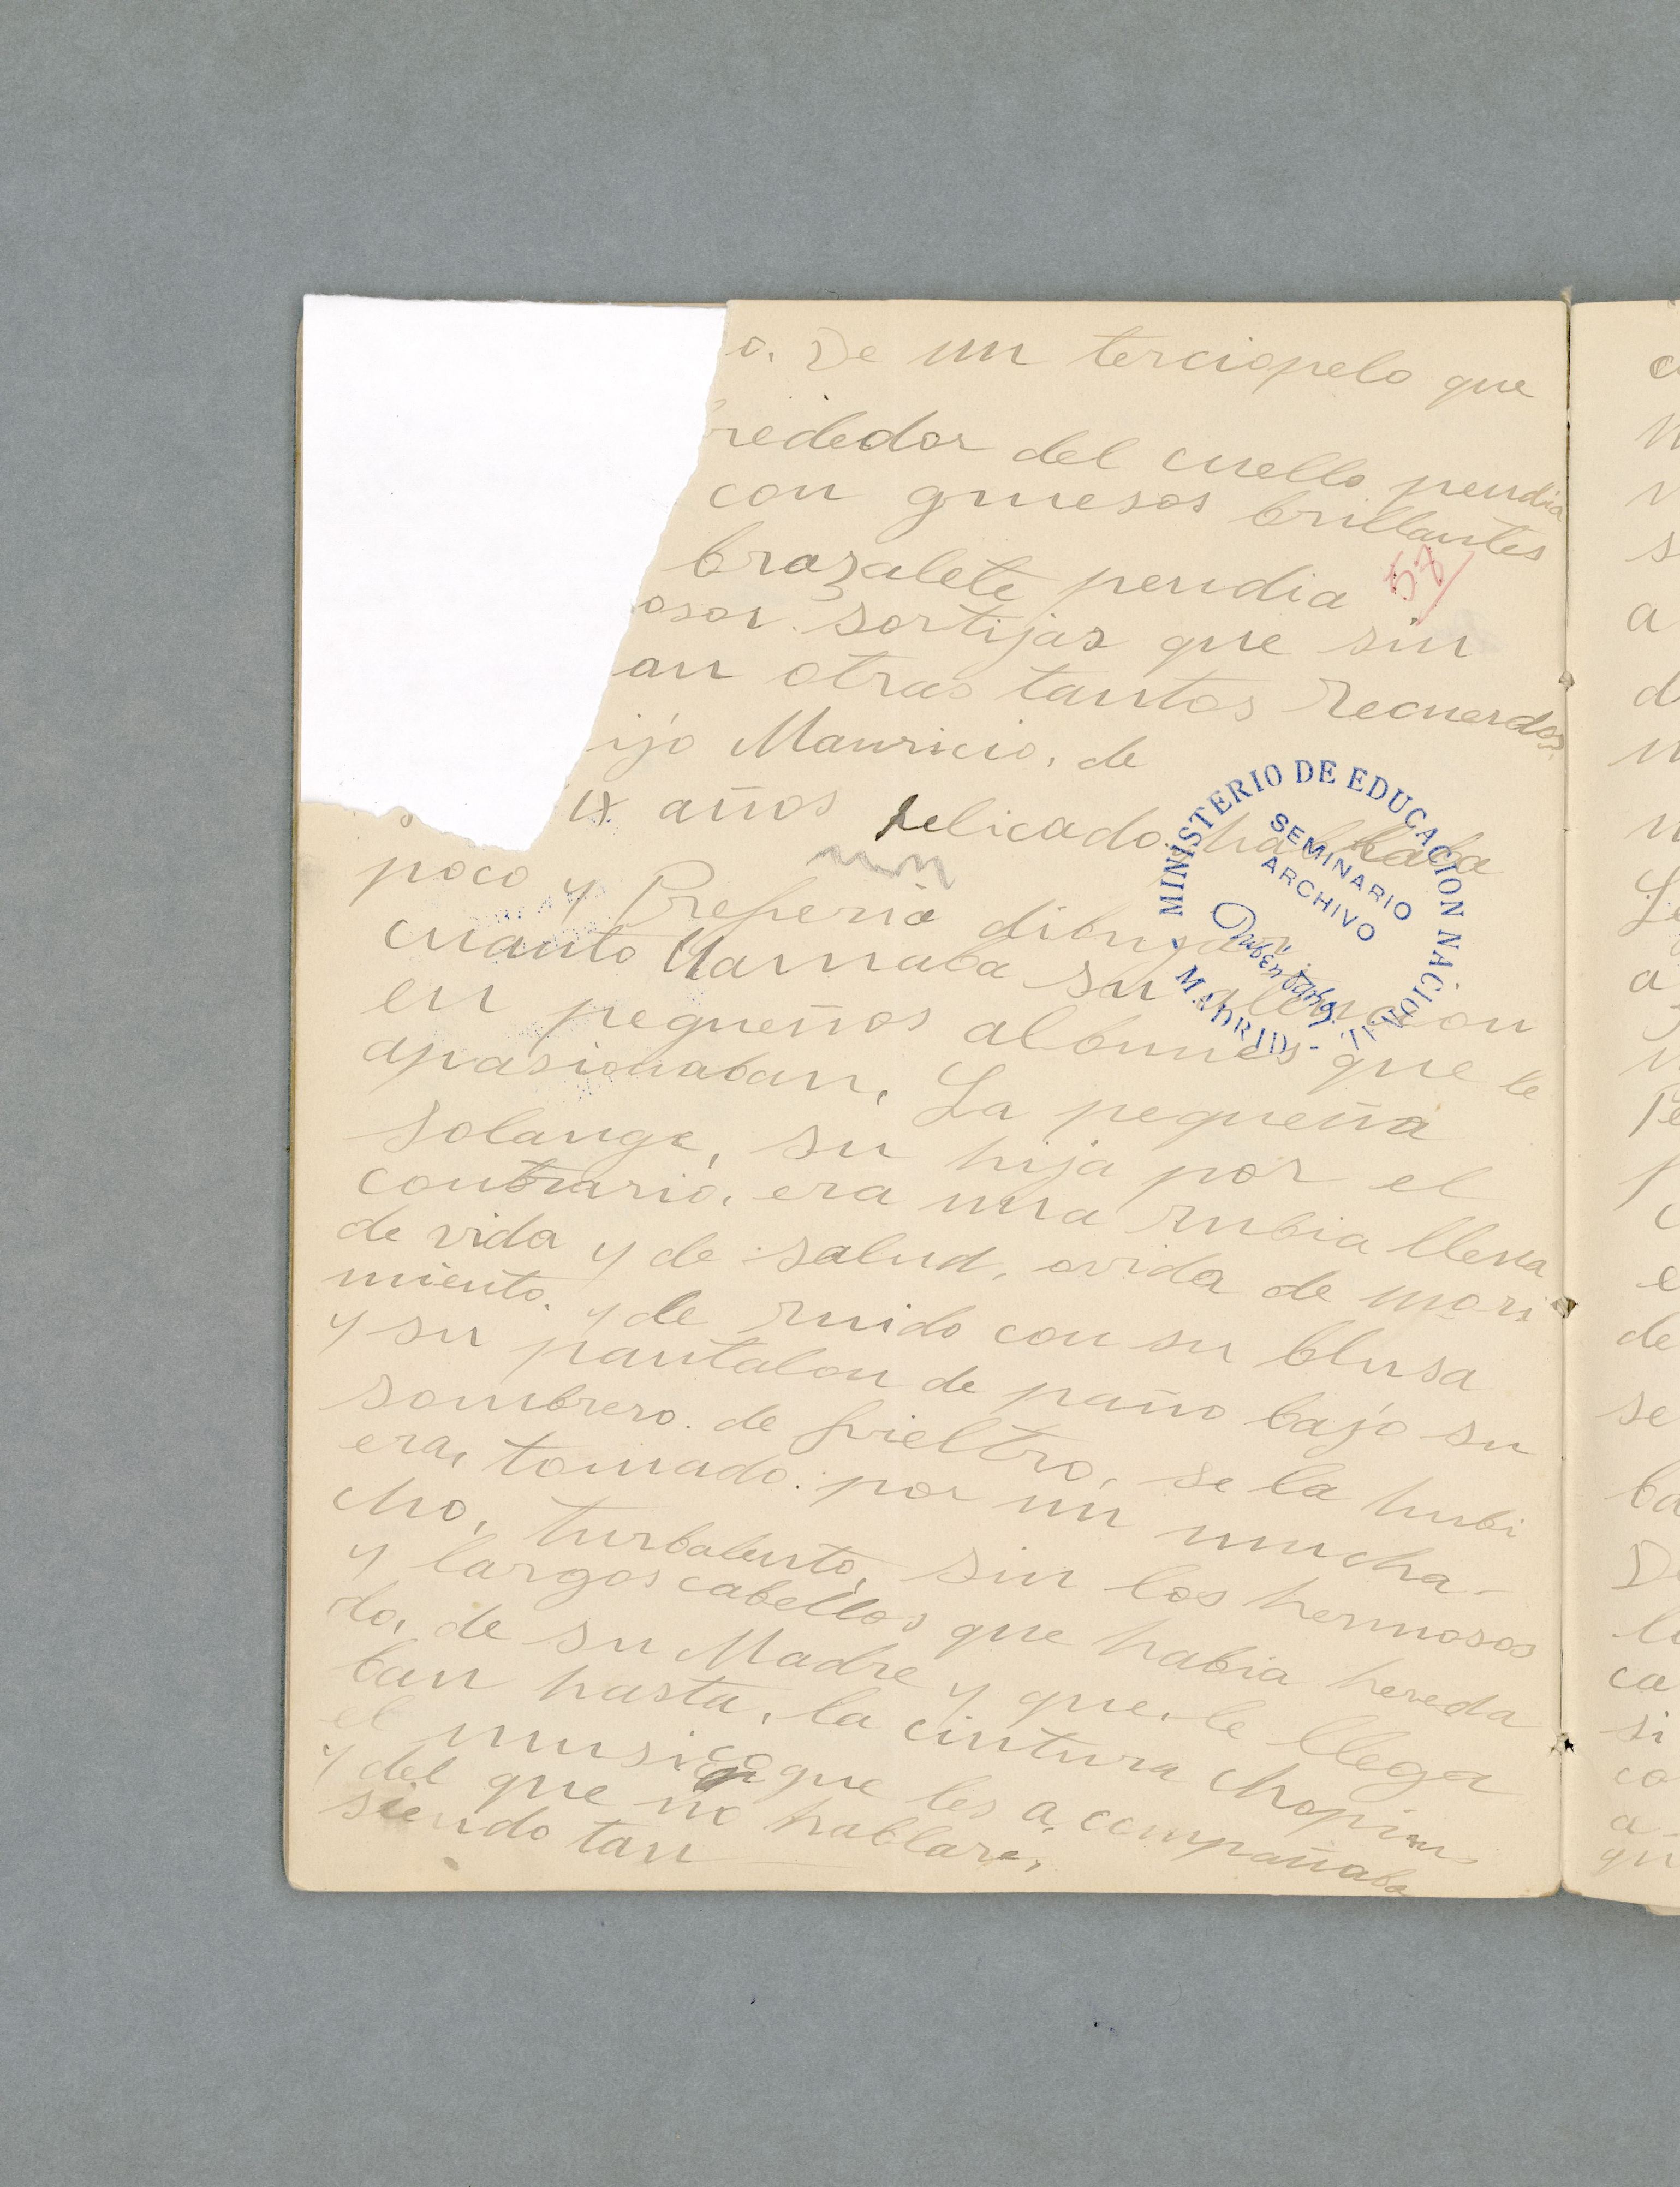 o. De un terciopelo que
rededor del cuello pendia
con gruesos brillantes
brazalete pendia
57
osas sortijas que sin
an otras tantos recuerdos
ijo Mauricio, de
años delicado hablaba
poco y Preferia dibujar
cuanto llamaba su atencion
en pequeños albunes que le
apasionaban, La pequeña
Solange, su hija por el
contrario, era una rubia llena
de vida y de salud, avida de movi
miento. y de ruido con su blusa
y su pantalon de paño bajo su
sombrero. de fieltro, se la hubi
era, tomado por un mucha-
cho, turbalento, sin los hermosos
y largos cabellos que habia hereda
do, de su Madre y que, le llega
ban hasta, la cintura Chopin
el musico que les a, compañaba
y del que no hablare,
siendo tan
MINISTERIO DE EDUCACION NACIONAL - MADRID -
SEMINARIO
ARCHIVO
Rubén Darío